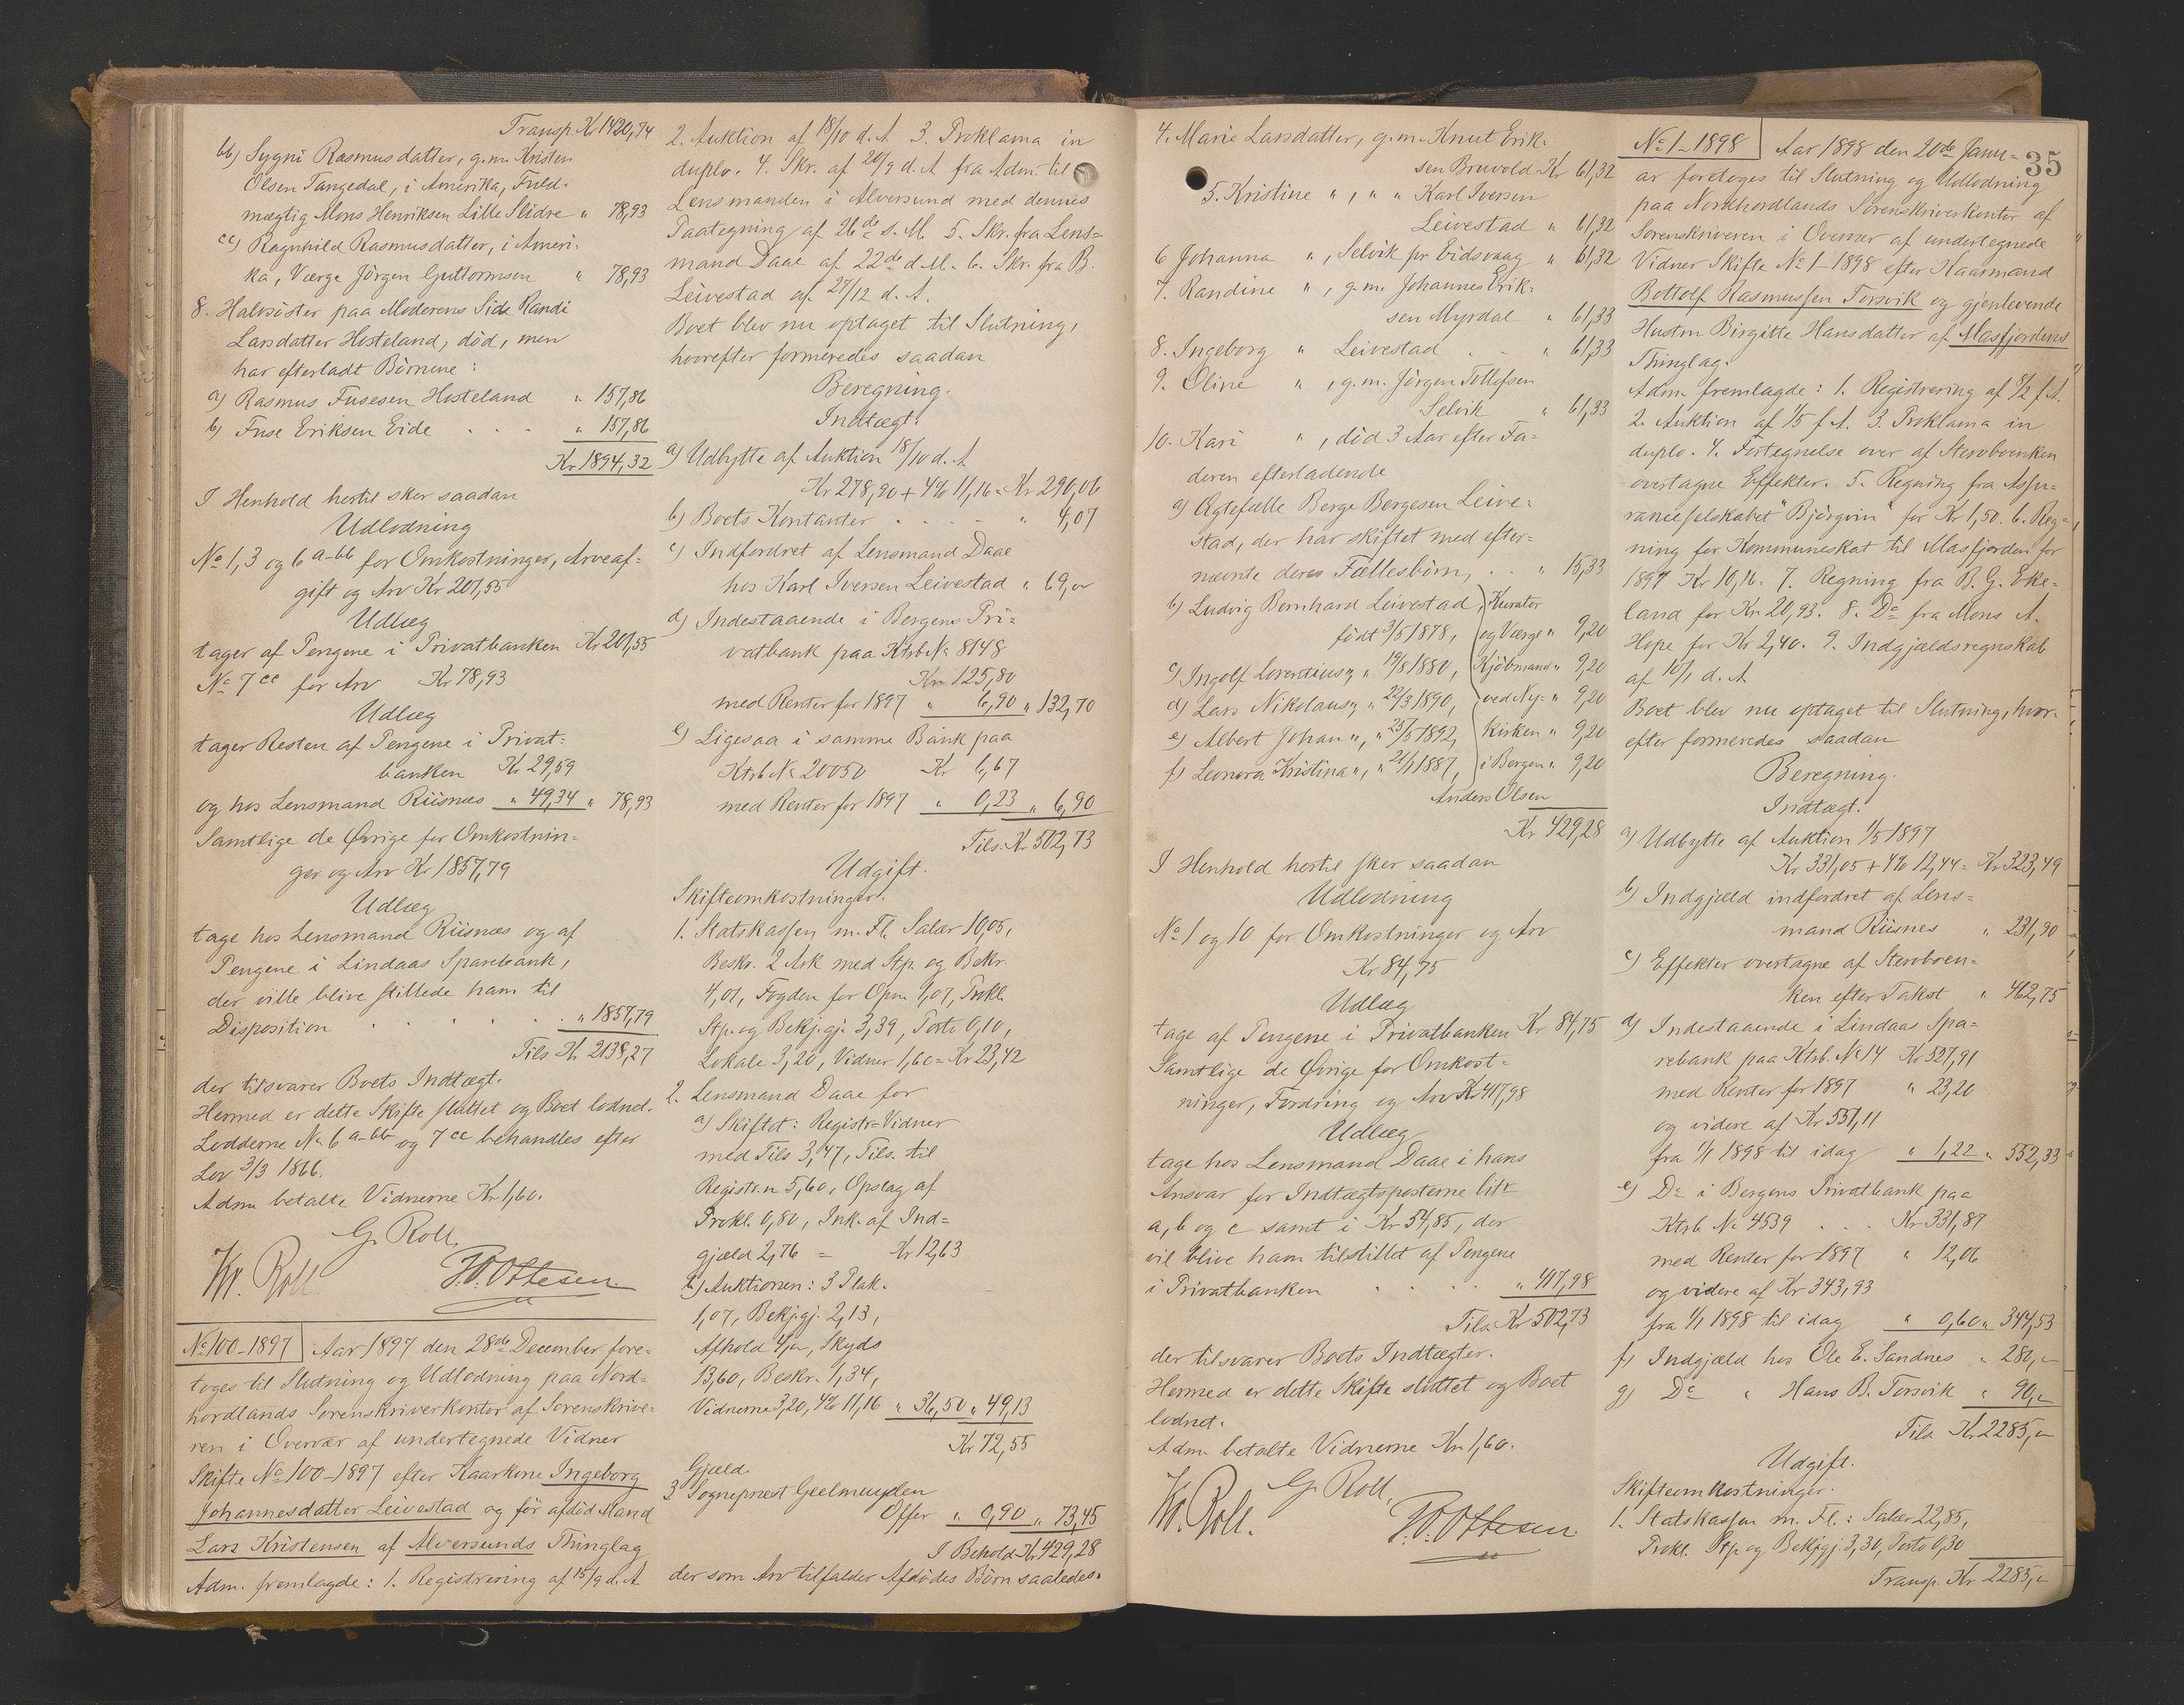 Transp. Kr 1420,74
bb) Sygni Rasmusdatter, g.m. Kristen
Olsen Tangedal, i Amerika, Fuld-
mægtig Mons Henriksen Lille Slidre " 78,93
cc) Ragnhild Rasmusdatter, i Ameri-
ka, Værge Jörgen Guttormsen " 78,93
8. Halvsöster paa Moderens Side Randi
Larsdatter Hosteland, död, men
har efterladt Börnene:
a) Rasmus Fusesen Hosteland " 157,86
b) Fuse Eriksen Eide . . . " 157,86
Kr 1894,32
I Henhold hertil sker saadan
Udlodning
No 1, 3 og 6 a-bb for Omkostninger, Arveaf-
gift og Arv Kr 201,55
Udlæg
tages af Pengene i Privatbanken Kr 201,55
No 7 cc for Arv Kr 78,93
Udlæg
tages Resten af Pengene i Privat-
banken Kr 29,59
og hos Lensmand Riisnæs " 49,34 " 78,93
Samtlige de Øvrige for Omkostnin-
ger og Arv Kr 1857,79
Udlæg
tage hos Lensmand Riisnæs og af
Pengene i Lindaas Sparebank,
der ville blive stillede ham til
Disposition . . . . . " 1857,79
Tils Kr 2138,27
der tilsvarer Boets Indtægt.
Hermed er dette Skifte sluttet og Boet lodnet.
Lodderne No 6 a-bb og 7 cc behandles efter
Lov 3/3 1866.
Adm. betalte Vidnerne Kr 1,60.
G. Roll,
Kr. Roll. P.O. Ottesen
No 100-1897 Aar 1897 den 28de December fore-
toges til Slutning og Udlodning paa Nord-
hordlands Sorenskriverkontor af Sorenskrive-
ren i Overvær af undertegnede Vidner
Skifte No 100-1897 efter Kaarkone Ingeborg
Johannesdatter Leivestad og för afdöd Mand
Lars Kristensen af Alversunds Thinglag
Adm. fremlagde: 1. Registrering af 15/9 d.A.
2. Auktion af 18/10 d.A. 3. Proklama in
duplo. 4. Skr. af 20/9 d.A. fra Adm. til
Lensmanden i Alversund med dennes
Paategning af 26de s.M. 5. Skr. fra Lens-
mand Daae af 22de d.M. 6. Skr. fra B.
Leivestad af 27/12 d.A.
Boet blev nu optaget til Slutning,
hvorefter formeredes saadan
Beregning.
Indtægt.
a) Udbytte af Auktion 18/10 d.A.
Kr 278,90 + 4% 11,16 = Kr 290,06
b) Boets Kontanter . . . . " 4,07
c) Indfordret af Lensmand Daae
hos Karl Iversen Leivestad " 69,00
d) Indestaaende i Bergens Pri-
vatbank paa Ktrb No 8148
Kr 125,80
med Renter for 1897 " 6,90 " 132,70
e) Ligesaa i samme Bank paa
Ktrb No 20050 Kr 6,67
med Renter for 1897 " 0,23 " 6,90
Tils. Kr 502,73
Udgift.
Skifteomkostninger.
1. Statskassen m. Fl. Salær 10,05,
Beskr. 2 Ark med Stp. og Bekr.
4,01, Fogden for Opn. 1,07, Prokl.
Stp. og Bekj.gj. 3,39, Porto 0,10,
Lokale 3,20, Vidner 1,60 = Kr 23,42
2. Lensmand Daae for
a) Skiftet: Registr. Vidner
med Tils 3,47, Tils. til
Registr.n 5,60, Opslag af
Prokl. 0,80, Ink. af Ind-
gjæld 2,76 = Kr 12,63
b) Auktionen: 3 Plak.
1,07, Bekj.gj. 2,13,
Afhold 4,00, Skyds
13,60, Beskr. 1,34,
Vidnerne 3,20, 4% 11,16 " 36,50 " 49,13
Kr 72,55
Gjæld.
3 Sognepræst Geelmuyden
Offer " 0,90 " 73,45
I Behold Kr 429,28
der som Arv tilfalder Afdödes Börn saaledes:
4. Marie Larsdatter, g.m. Knut Erik-
sen Bruvold Kr 61,32
5. Kristine " , " " Karl Iversen
Leivestad " 61,32
6 Johanna " , Selvik pr Eidsvaag " 61,32
7. Randine " , g.m. Johannes Erik-
sen Myrdal " 61,33
8. Ingeborg " Leivestad . . " 61,33
9. Oline " , g.m. Jörgen Tollefsen
Selvik " 61,33
10. Kari " , död 3 Aar efter Fa-
deren efterladende
a) Ægtefælle Berge Bergesen Leive-
stad, der har skiftet med efter-
nævnte deres Fællesbörn, . . " 15,33
b) Ludvig Bernhard Leivestad, Kurator
födt 3/5 1878, og Værge " 9,20
c) Ingolf Lorentius ", " 19/8 1880, Kjöbmand " 9,20
d) Lars Nikolaus ", " 22/3 1890, ved Ny- " 9,20
e) Albert Johan ", " 25/5 1892, Kirken " 9,20
f) Leonora Kristina ", " 21/1 1887, i Bergen " 9,20
Anders Olsen
Kr 429,28
I Henhold hertil sker saadan
Udlodning
No 1 og 10 for Omkostninger og Arv
Kr 84,75
Udlæg
tage af Pengene i Privatbanken Kr 84,75
Samtlige de Øvrige for Omkost-
ninger, Fordring og Arv Kr 417,98
Udlæg
tage hos Lensmand Daae i hans
Ansvar for Indtægtsposterne litr
a, b og c samt i Kr 54,85, der
vil blive ham tilstillet af Pengene
i Privatbanken . . . . " 417,98
Tils. Kr 502,73
der tilsvarer Boets Indtægter.
Hermed er dette Skifte sluttet og Boet
lodnet.
Adm. betalte Vidnerne Kr. 1,60.
G. Roll,
Kr. Roll. P.O. Ottesen.
35
No 1-1898 Aar 1898 den 20de Janu-
ar foretoges til Slutning og Udlodning
paa Nordhordlands Sorenskriverkontor af
Sorenskriveren i Overvær af undertegnede
Vidner Skifte No 1-1898 efter Kaarmand
Bottolf Rasmussen Torsvik og gjenlevende
Hustru Birgitte Hansdatter af Masfjordens
Thinglag.
Adm. fremlagde: 1. Registrering af 8/2 f.A.
2. Auktion af 1/5 f.A. 3. Proklama in
duplo. 4. Fortegnelse over af Stervboenken
overtagne Effekter. 5. Regning fra Assu-
ranceselskabet "Björgvin" for Kr 1,50. 6. Reg-
ning for Kommuneskat til Masfjorden for
1897 Kr 10,16. 7. Regning fra B. G. Eke-
land for Kr. 20,93. 8. Do fra Mons A.
Hope for Kr 2,40. 9. Indgjældsregnskab
af 10/1 d.A.
Boet blev nu optaget til Slutning, hvor-
efter formeredes saadan
Beregning.
Indtægt.
a) Udbytte af Auktion 1/5 1897
Kr 331,05 + 4% 12,44 = Kr 323,49
b) Indgjæld indfordret af Lens-
mand Riisnes " 231,90
c) Effekter overtagne af Stervboen-
ken efter Takst " 462,75
d) Indestaaende i Lindaas Spa-
rebank paa Ktrb. No 14 Kr 527,91
med Renter for 1897 " 23,20
og videre af Kr 551,11
fra 1/1 1898 til idag " 1,22 " 552,33
e) Do i Bergens Privatbank paa
Ktrb No 4539 . . . Kr 331,87
med Renter for 1897 " 12,06
og videre af Kr 343,93
fra 1/1 1898 til idag " 0,60 " 344,53
f) Indgjæld hos Ole E. Sandnes " 280,00
g) Do " Hans B. Torsvik " 90,00
Tils. Kr 2285,00
Udgift.
Skifteomkostninger.
1. Statskassen m. Fl.: Salær 22,85,
Prokl. Stp og Bekjgj. 3,30, Porto 0,30
Transp. Kr 2285,00